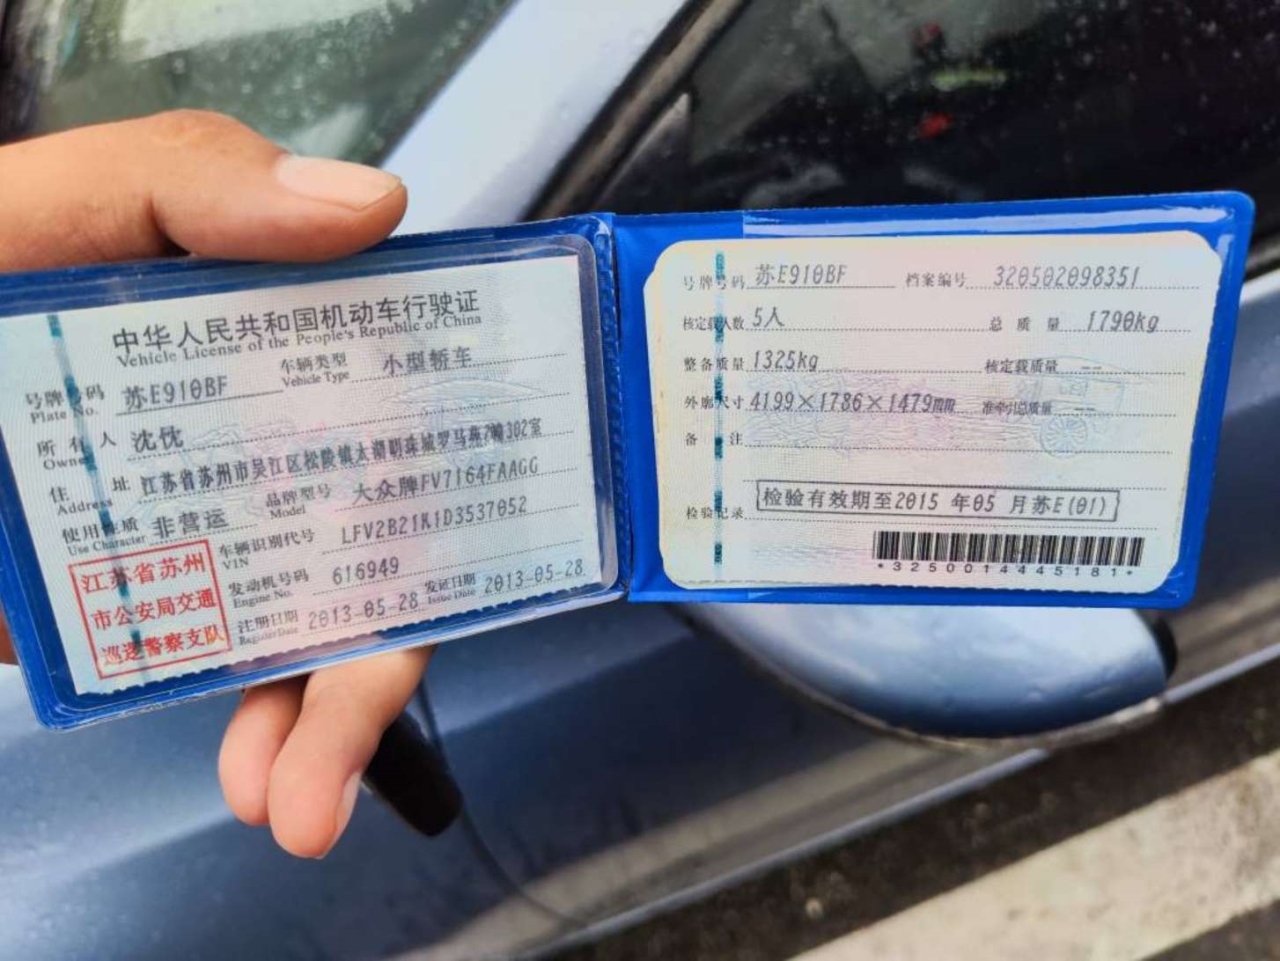 中华人民共和国机动车行驶证
Vehicle License of the People's Republic of China
号牌号码 苏E910BF 车辆类型 小型轿车
Plate No. Vehicle Type
所有人 沈忱
Owner
住址 江苏省苏州市吴江区松陵镇太湖明珠城罗马苑7幢302室
Address
使用性质 非营运 品牌型号 大众牌FV7164FAAGG
Use Character Model
车辆识别代号 LFV2B21K1D3537052
VIN
发动机号码 616949
Engine No.
注册日期 2013-05-28 发证日期 2013-05-28
Register Date Issue Date
江苏省苏州
市公安局交通
巡逻警察支队
号牌号码 苏E910BF 档案编号 320502098351
核定载人数 5人 总质量 1790kg
整备质量 1325kg 核定载质量 --
外廓尺寸 4199×1786×1479mm 准牵引总质量 --
备注
检验记录 检验有效期至2015年05月苏E(01)
*3250014445181*